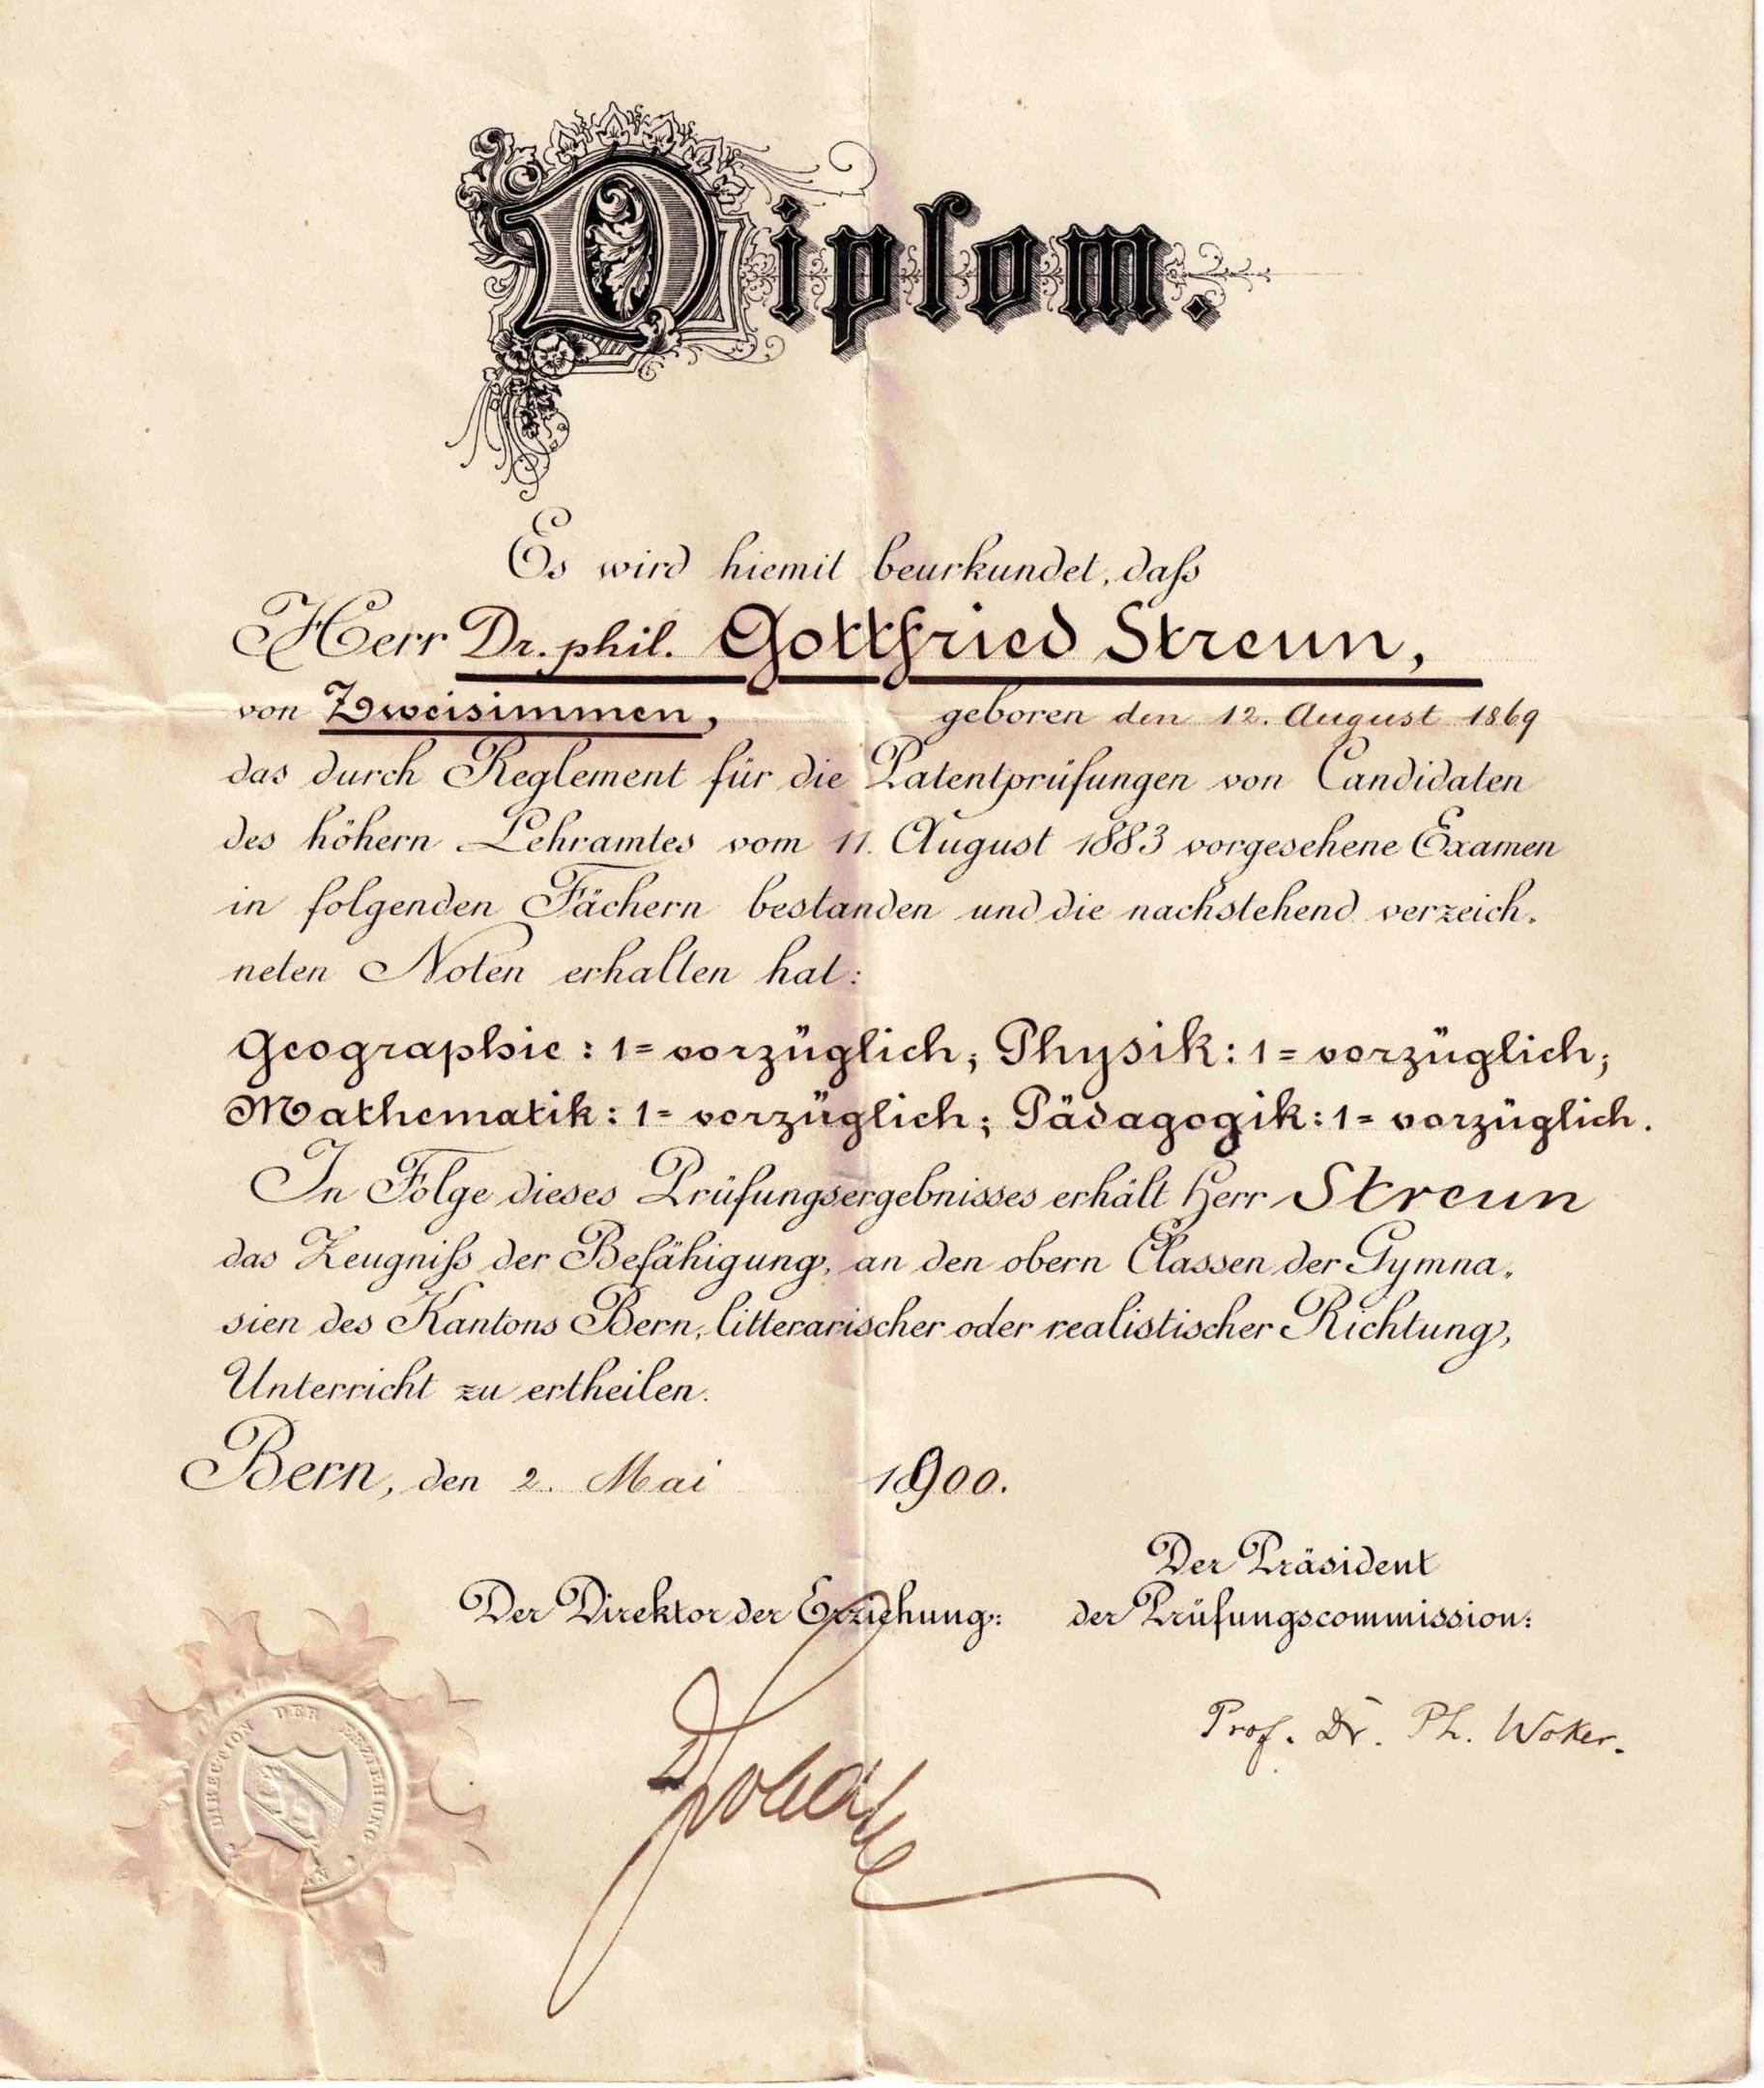 Diplom.
Es wird hiemit beurkundet, daſs
Herr Dr. phil. Gottfried Streun,
von Zweisimmen, geboren den 12. August 1869
das durch Reglement für die Patentprüfungen von Candidaten
des höhern Lehramtes vom 11. August 1883 vorgesehene Examen
in folgenden Fächern bestanden und die nachstehend verzeich-
neten Noten erhalten hat:
Geographie: 1 = vorzüglich; Physik: 1 = vorzüglich;
Mathematik: 1 = vorzüglich; Pädagogik: 1 = vorzüglich.
In Folge dieses Prüfungsergebnisses erhält Herr Streun
das Zeugniſs der Befähigung, an den obern Classen der Gymna-
sien des Kantons Bern, litterarischer oder realistischer Richtung,
Unterricht zu ertheilen.
Bern, den 2. Mai 1900.
Der Direktor der Erziehung:
Der Präsident
der Prüfungscommission:
Prof. Dr. Ph. Woker.
DIRECTION DER ERZIEHUNG